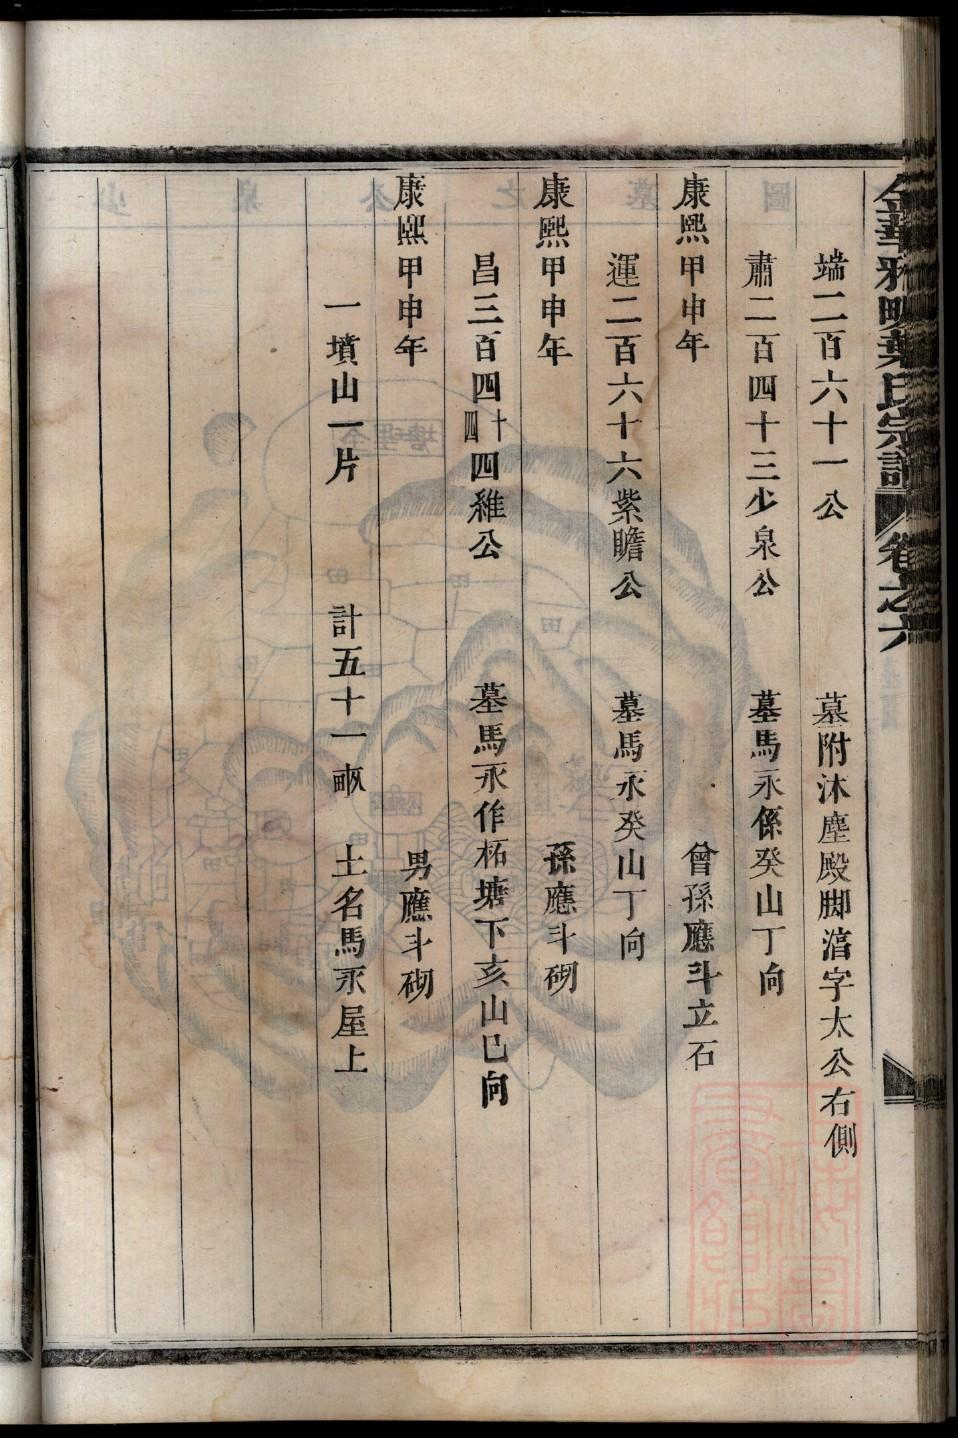 金華雅畈葉氏宗譜 卷之六
端二百六十一公 墓附沐塵殿脚湻字太公右側
肅二百四十三少泉公 墓馬永係癸山丁向
康熙甲申年 曾孫應斗立石
運二百六十六紫瞻公 墓馬永癸山丁向
康熙甲申年 孫應斗砌
昌三百四十四四維公 墓馬永作柘塘下亥山巳向
康熙甲申年 男應斗砌
一墳山一片 計五十一畝 土名馬永屋上